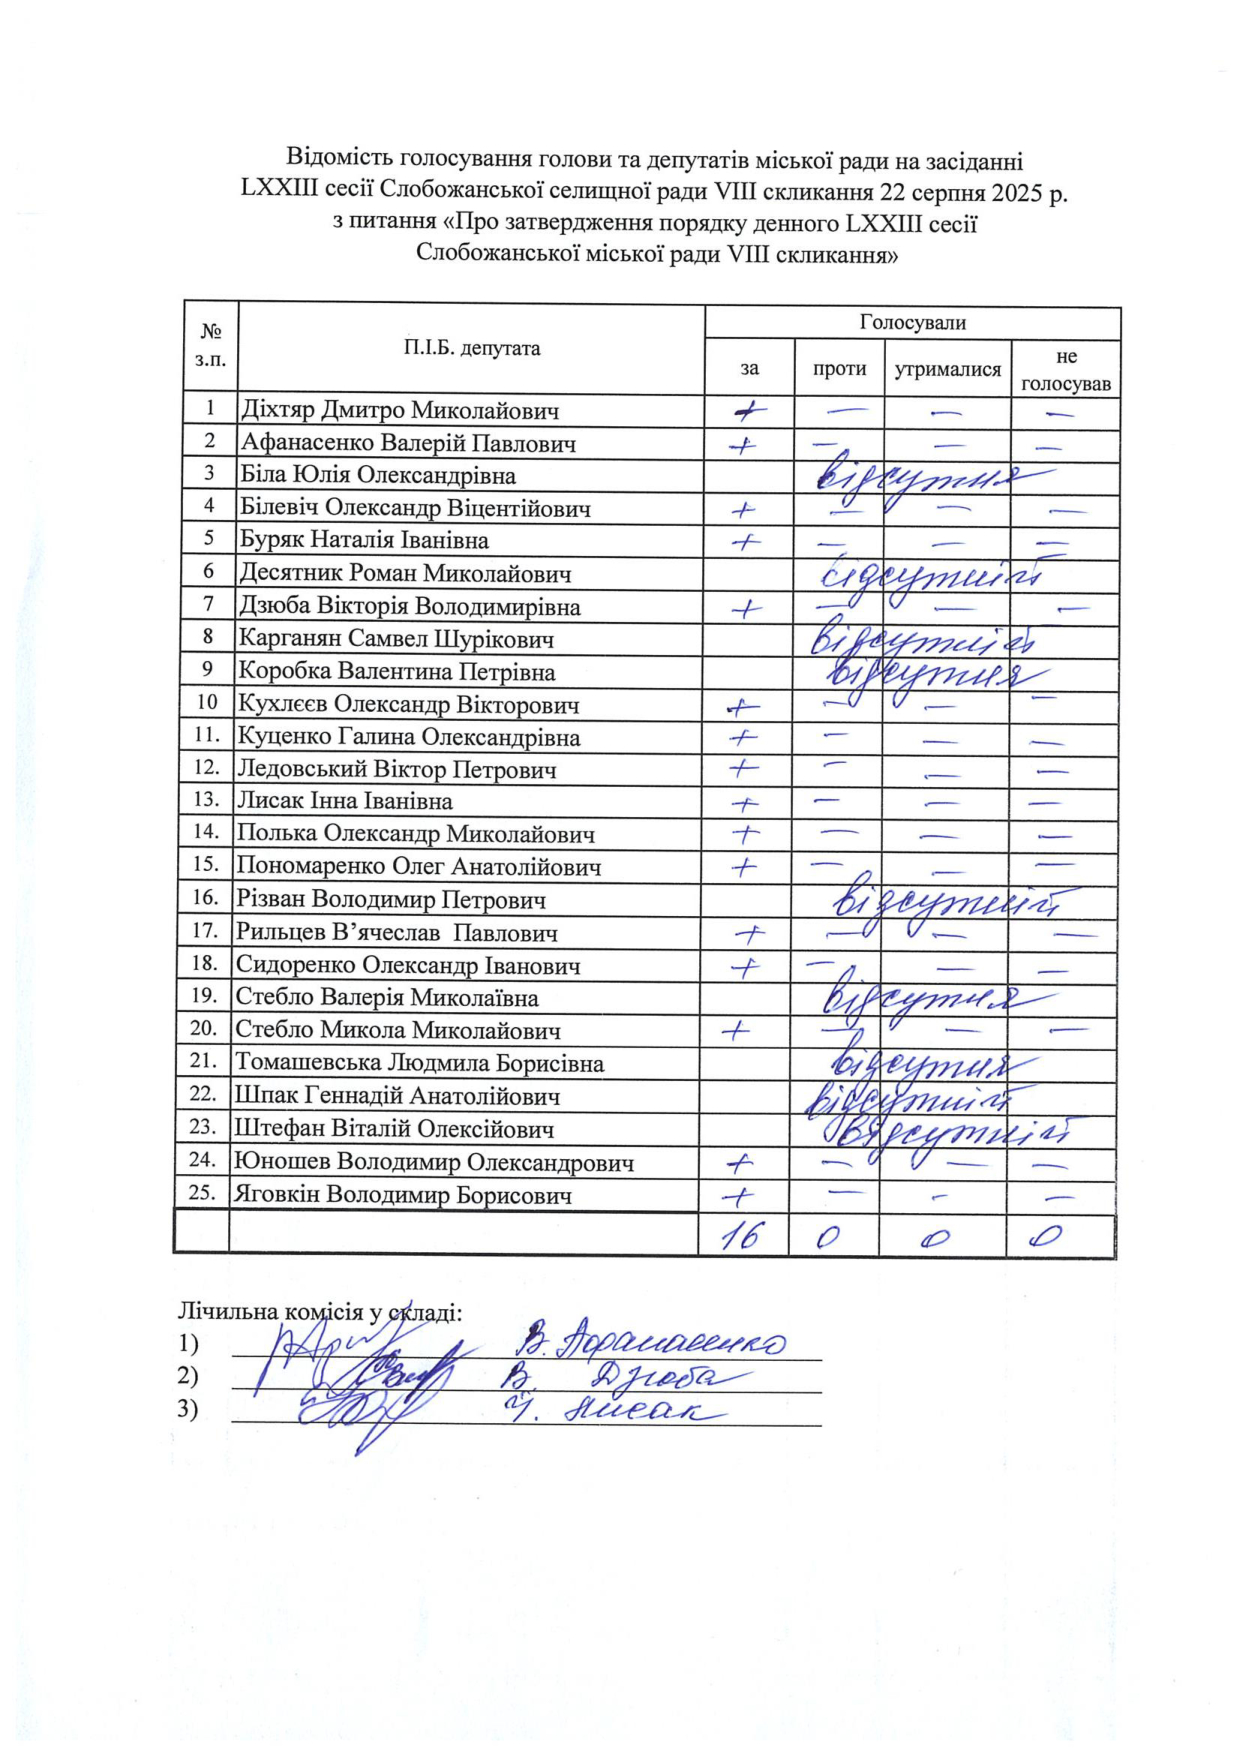 Відомість голосування голови та депутатів міської ради на засіданні
LXXIII сесії Слобожанської селищної ради VIII скликання 22 серпня 2025 р.
з питання «Про затвердження порядку денного LXXIII сесії
Слобожанської міської ради VIII скликання»
№ з.п. П.І.Б. депутата Голосували
за проти утрималися не голосував
1 Діхтяр Дмитро Миколайович + — — —
2 Афанасенко Валерій Павлович + — — —
3 Біла Юлія Олександрівна відсутня
4 Білевіч Олександр Віцентійович + — — —
5 Буряк Наталія Іванівна + — — —
6 Десятник Роман Миколайович відсутній
7 Дзюба Вікторія Володимирівна + — — —
8 Карганян Самвел Шурікович відсутній
9 Коробка Валентина Петрівна відсутня
10 Кухлєєв Олександр Вікторович + — — —
11. Куценко Галина Олександрівна + — — —
12. Ледовський Віктор Петрович + — — —
13. Лисак Інна Іванівна + — — —
14. Полька Олександр Миколайович + — — —
15. Пономаренко Олег Анатолійович + — — —
16. Різван Володимир Петрович відсутній
17. Рильцев В’ячеслав Павлович + — — —
18. Сидоренко Олександр Іванович + — — —
19. Стебло Валерія Миколаївна відсутня
20. Стебло Микола Миколайович + — — —
21. Томашевська Людмила Борисівна відсутня
22. Шпак Геннадій Анатолійович відсутній
23. Штефан Віталій Олексійович відсутній
24. Юношев Володимир Олександрович + — — —
25. Яговкін Володимир Борисович + — — —
16 0 0 0
Лічильна комісія у складі:
1) В. Афанасенко
2) В. Дзюба
3) І. Лисак